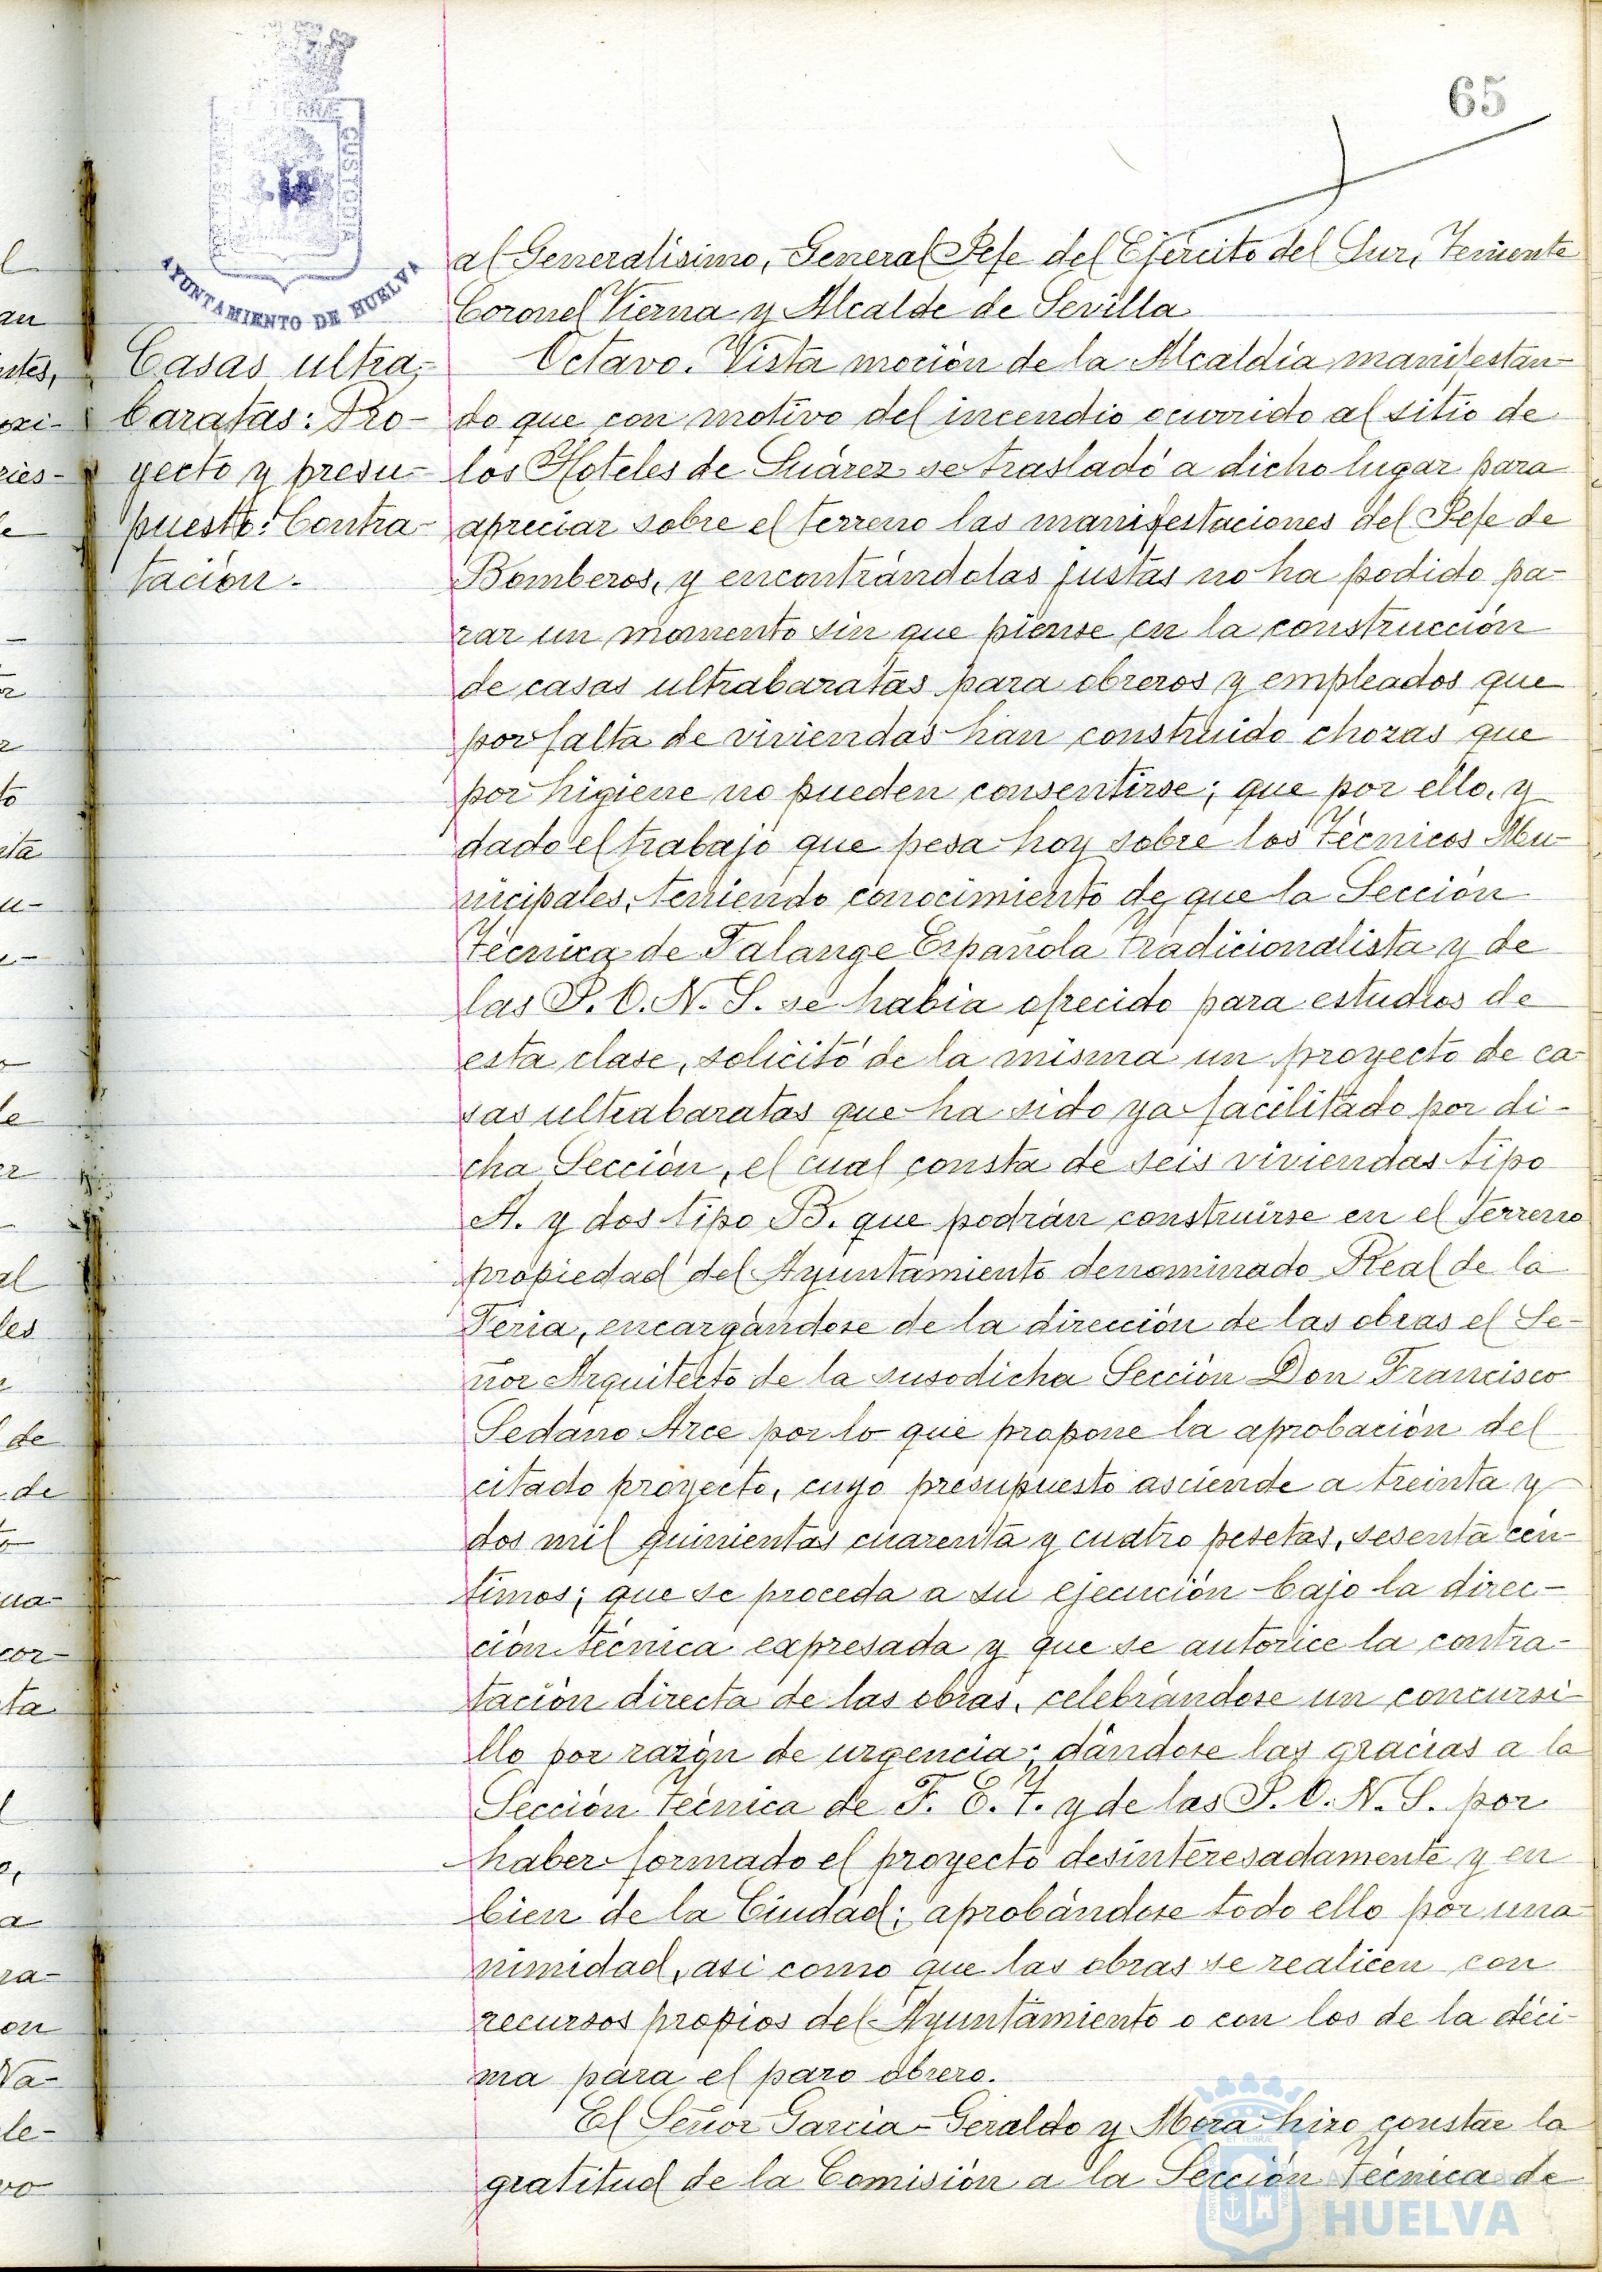 65
TERRÆ
CUSTODIA
AYUNTAMIENTO DE HUELVA
Casas ultra-
baratas: Pro-
yecto y presu-
puesto: Contra-
tación.
al Generalísimo, General Jefe del Ejército del Sur, Teniente
Coronel Vierna y Alcalde de Sevilla
Octavo. Vista moción de la Alcaldía manifestan-
do que con motivo del incendio ocurrido al sitio de
los Hoteles de Suárez se trasladó a dicho lugar para
apreciar sobre el terreno las manifestaciones del Jefe de
Bomberos, y encontrándolas justas no ha podido pa-
rar un momento sin que piense en la construcción
de casas ultrabaratas para obreros y empleados que
por falta de viviendas han construido chozas que
por higiene no pueden consentirse; que por ello, y
dado el trabajo que pesa hoy sobre los Técnicos Mu-
nicipales, teniendo conocimiento de que la Sección
Técnica de Falange Española Tradicionalista y de
las J. O. N. S. se había ofrecido para estudios de
esta clase, solicitó de la misma un proyecto de ca-
sas ultrabaratas que ha sido ya facilitado por di-
cha Sección, el cual consta de seis viviendas tipo
A. y dos tipo B. que podrán construirse en el terreno
propiedad del Ayuntamiento denominado Real de la
Feria, encargándose de la dirección de las obras el Se-
ñor Arquitecto de la susodicha Sección Don Francisco
Sedano Arce por lo que propone la aprobación del
citado proyecto, cuyo presupuesto asciende a treinta y
dos mil quinientas cuarenta y cuatro pesetas, sesenta cén-
timos; que se proceda a su ejecución bajo la direc-
ción técnica expresada y que se autorice la contra-
tación directa de las obras, celebrándose un concursi-
llo por razón de urgencia; dándose las gracias a la
Sección Técnica de F. E. T. y de las J. O. N. S. por
haber formado el proyecto desinteresadamente y en
bien de la Ciudad; aprobándose todo ello por una
nimidad, asi como que las obras se realicen con
recursos propios del Ayuntamiento o con los de la déci-
ma para el paro obrero.
El Señor García-Geraldo y Mora hizo constar la
gratitud de la Comisión a la Sección Técnica de
HUELVA